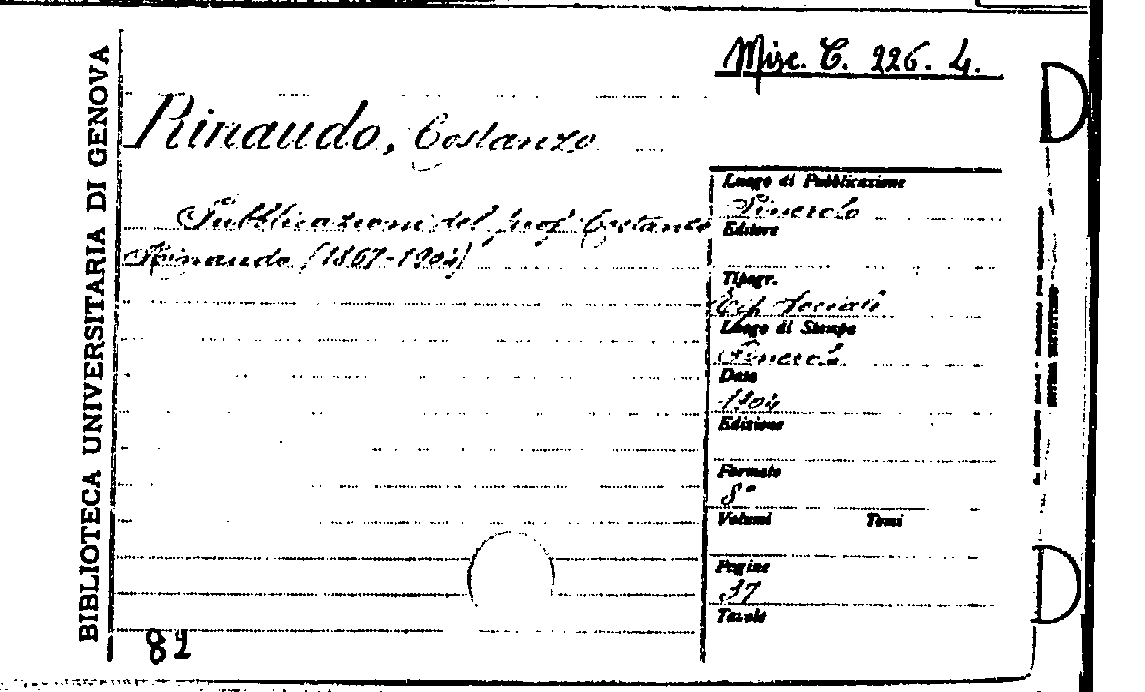 BIBLIOTECA UNIVERSITARIA DI GENOVA
Misc. C. 226. 4.
Rinaudo, Costanzo
Pubblicazioni del prof Costanzo
Rinaudo (1867-1904)
Luogo di Pubblicazione
Pinerolo
Editore
Tipogr.
Tip. Sociale
Luogo di Stampa
Pinerolo
Data
1904
Edizione
Formato
8°
Volumi Tomi
Pagine
37
Tavole
82